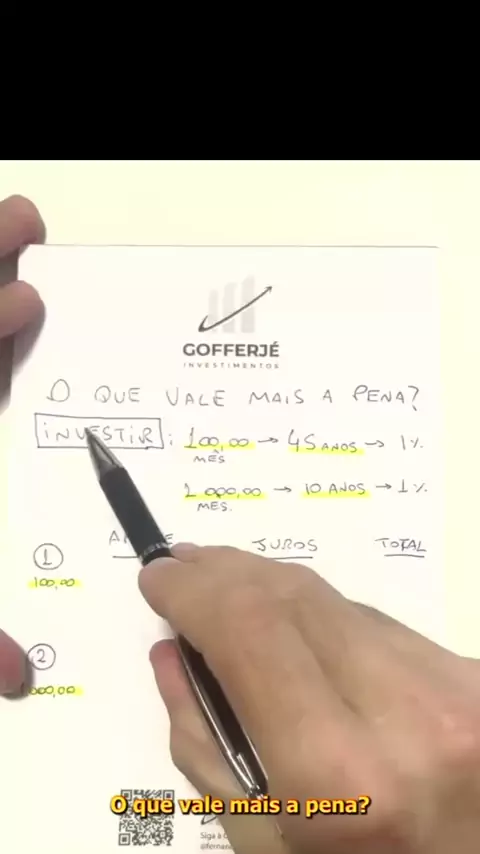 GOFFERJÉ
INVESTIMENTOS
O QUE VALE MAIS A PENA?
INVESTIR: 100,00 → 45 ANOS → 1%
MÊS
1 000,00 → 10 ANOS → 1%
MÊS.
JUROS TOTAL
1
100,00
2
000,00
O que vale mais a pena?
Siga a